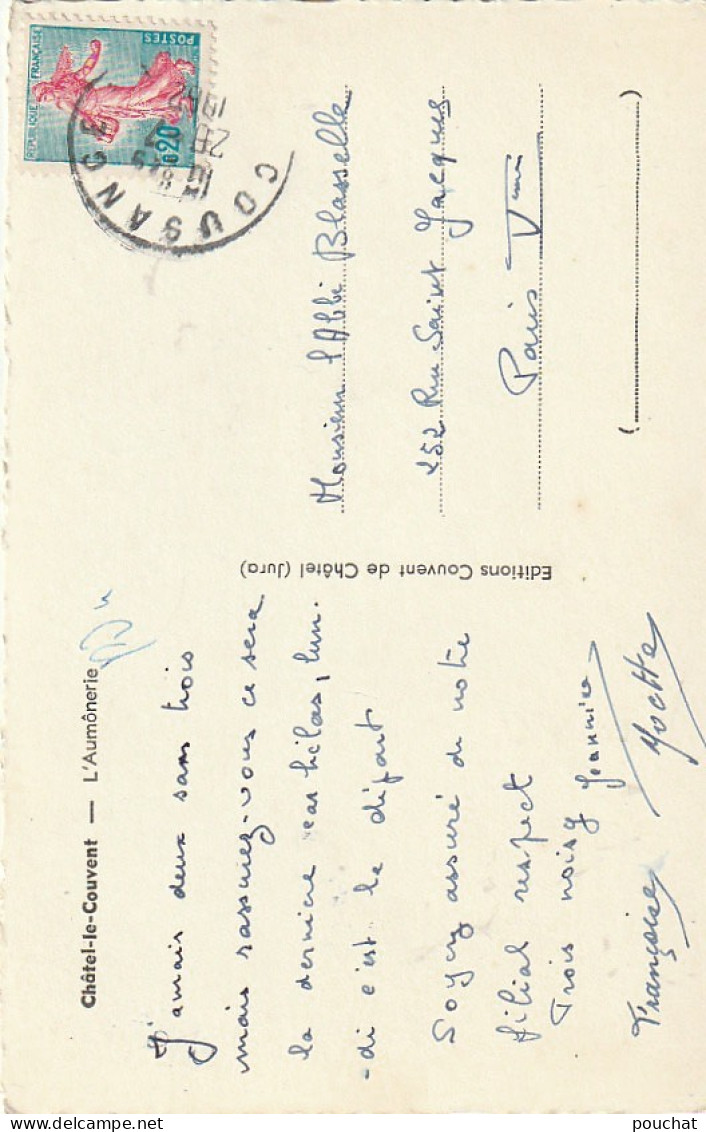 Châtel-le-Couvent — L'Aumônerie
J'amais deux sans trois
mais rassurez-vous ce sera
la dernière car hélas, lun-
-di c'est le départ
Soyez assuré de notre
filial respect
Trois noisy Jeannine
Françoise Yvette
Editions Couvent de Châtel (Jura)
REPUBLIQUE FRANÇAISE
POSTES
0,20
COUSANCE
1962
Monsieur l'Abbé Blasselle
252 Rue Saint Jacques
Paris Vème
pouchat